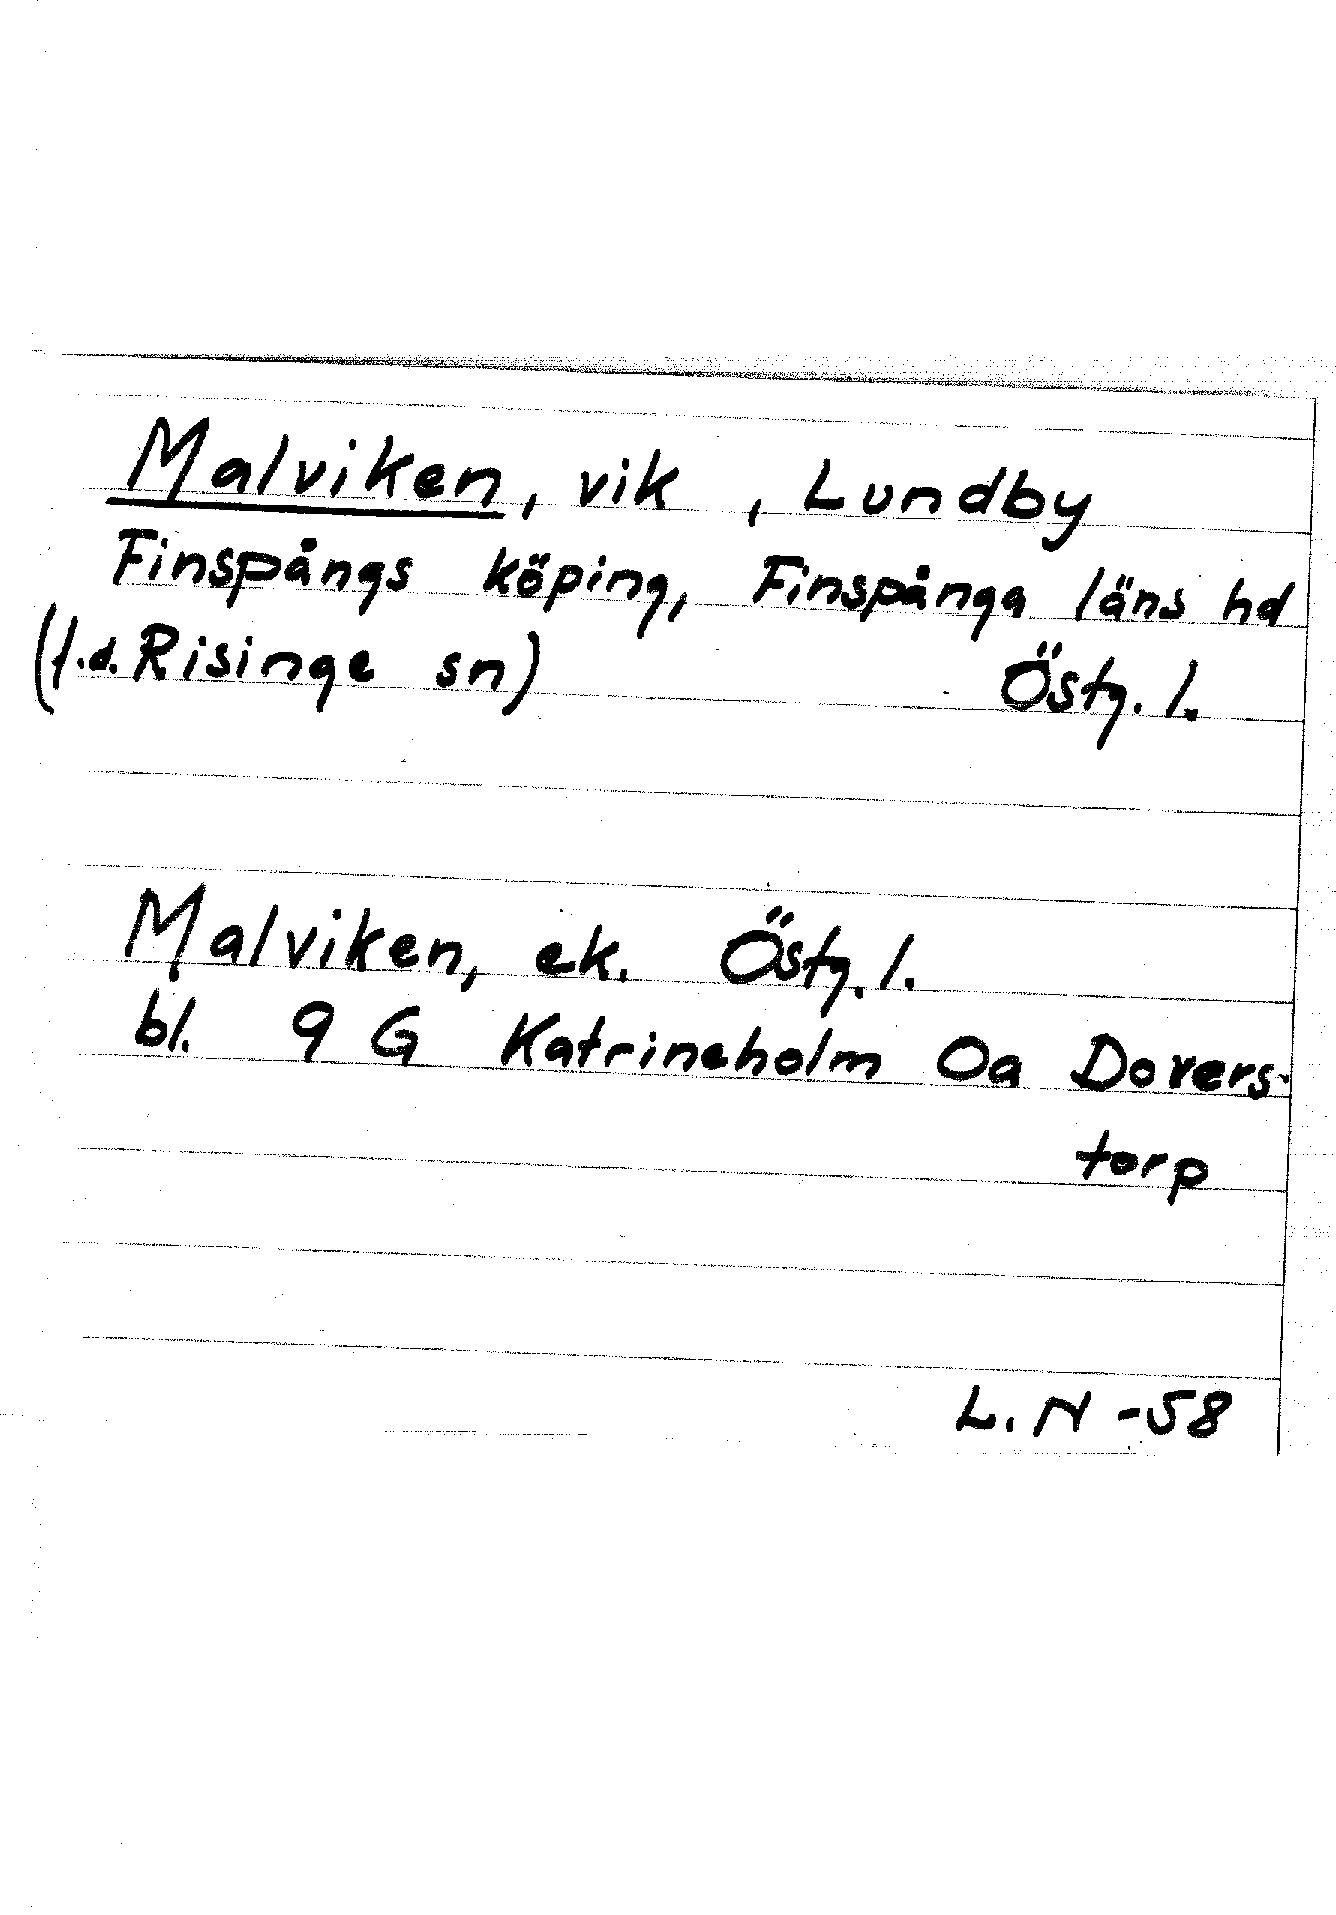 Malviken, vik , Lundby
Finspångs köping, Finspånga läns hd
(f.d. Risinge sn) Östg. l.
Malviken, ek. Östg. l.
bl. 9 G Katrineholm Oa Dovers-
torp
L. N -58